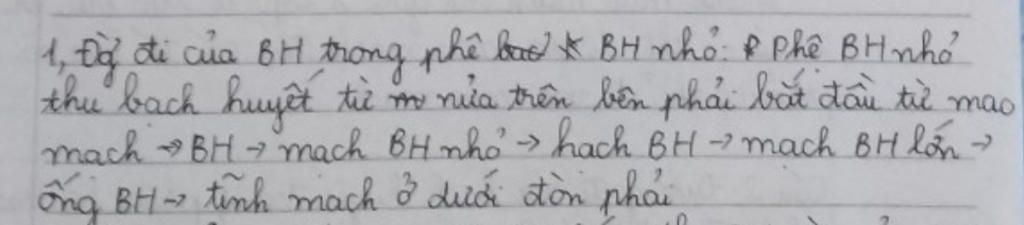 1, Đg đi của BH trong phê * BH nhỏ: Phê BH nhỏ
thu bach huyết từ nửa trên bên phải bắt đầu từ mao
mạch → BH → mạch BH nhỏ → hạch BH → mạch BH lớn →
ống BH → tĩnh mạch ở dưới đòn phải